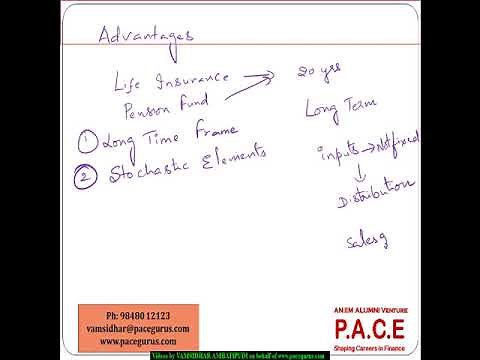 Advantages
Life Insurance
Pension Fund
20 yrs
Long Term
1 Long Time Frame
2 Stochastic Elements
inputs → Not fixed
Distribution
Sales
Ph: 98480 12123
vamsidhar@pacegurus.com
www.pacegurus.com
AN IIM ALUMNI VENTURE
P.A.C.E
Shaping Careers in Finance
Videos by VAMSIDHAR AMBATIPUDI on behalf of www.pacegurus.com